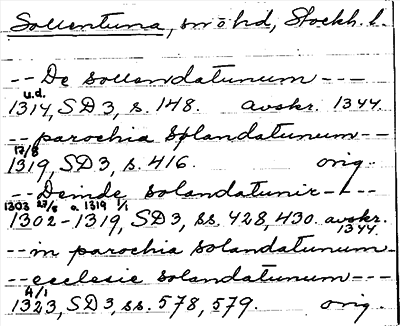 Sollentuna, snöhd, Stockh. l.
-- De sollendatunum ---
u.d.
1314, SD 3, s. 148. avskr. 1344.
-- parochia Solandatunum --
17/8
1319, SD 3, s. 416. orig.
-- Deinde solandatunir ---
1303 27/6 o. 1319 1/1
1302-1319, SD 3, ss. 428, 430. avskr. 1344.
-- in parochia solandatunum
-- ecclesie solandatunum ---
4/1
1323, SD 3, ss. 578, 579. orig.